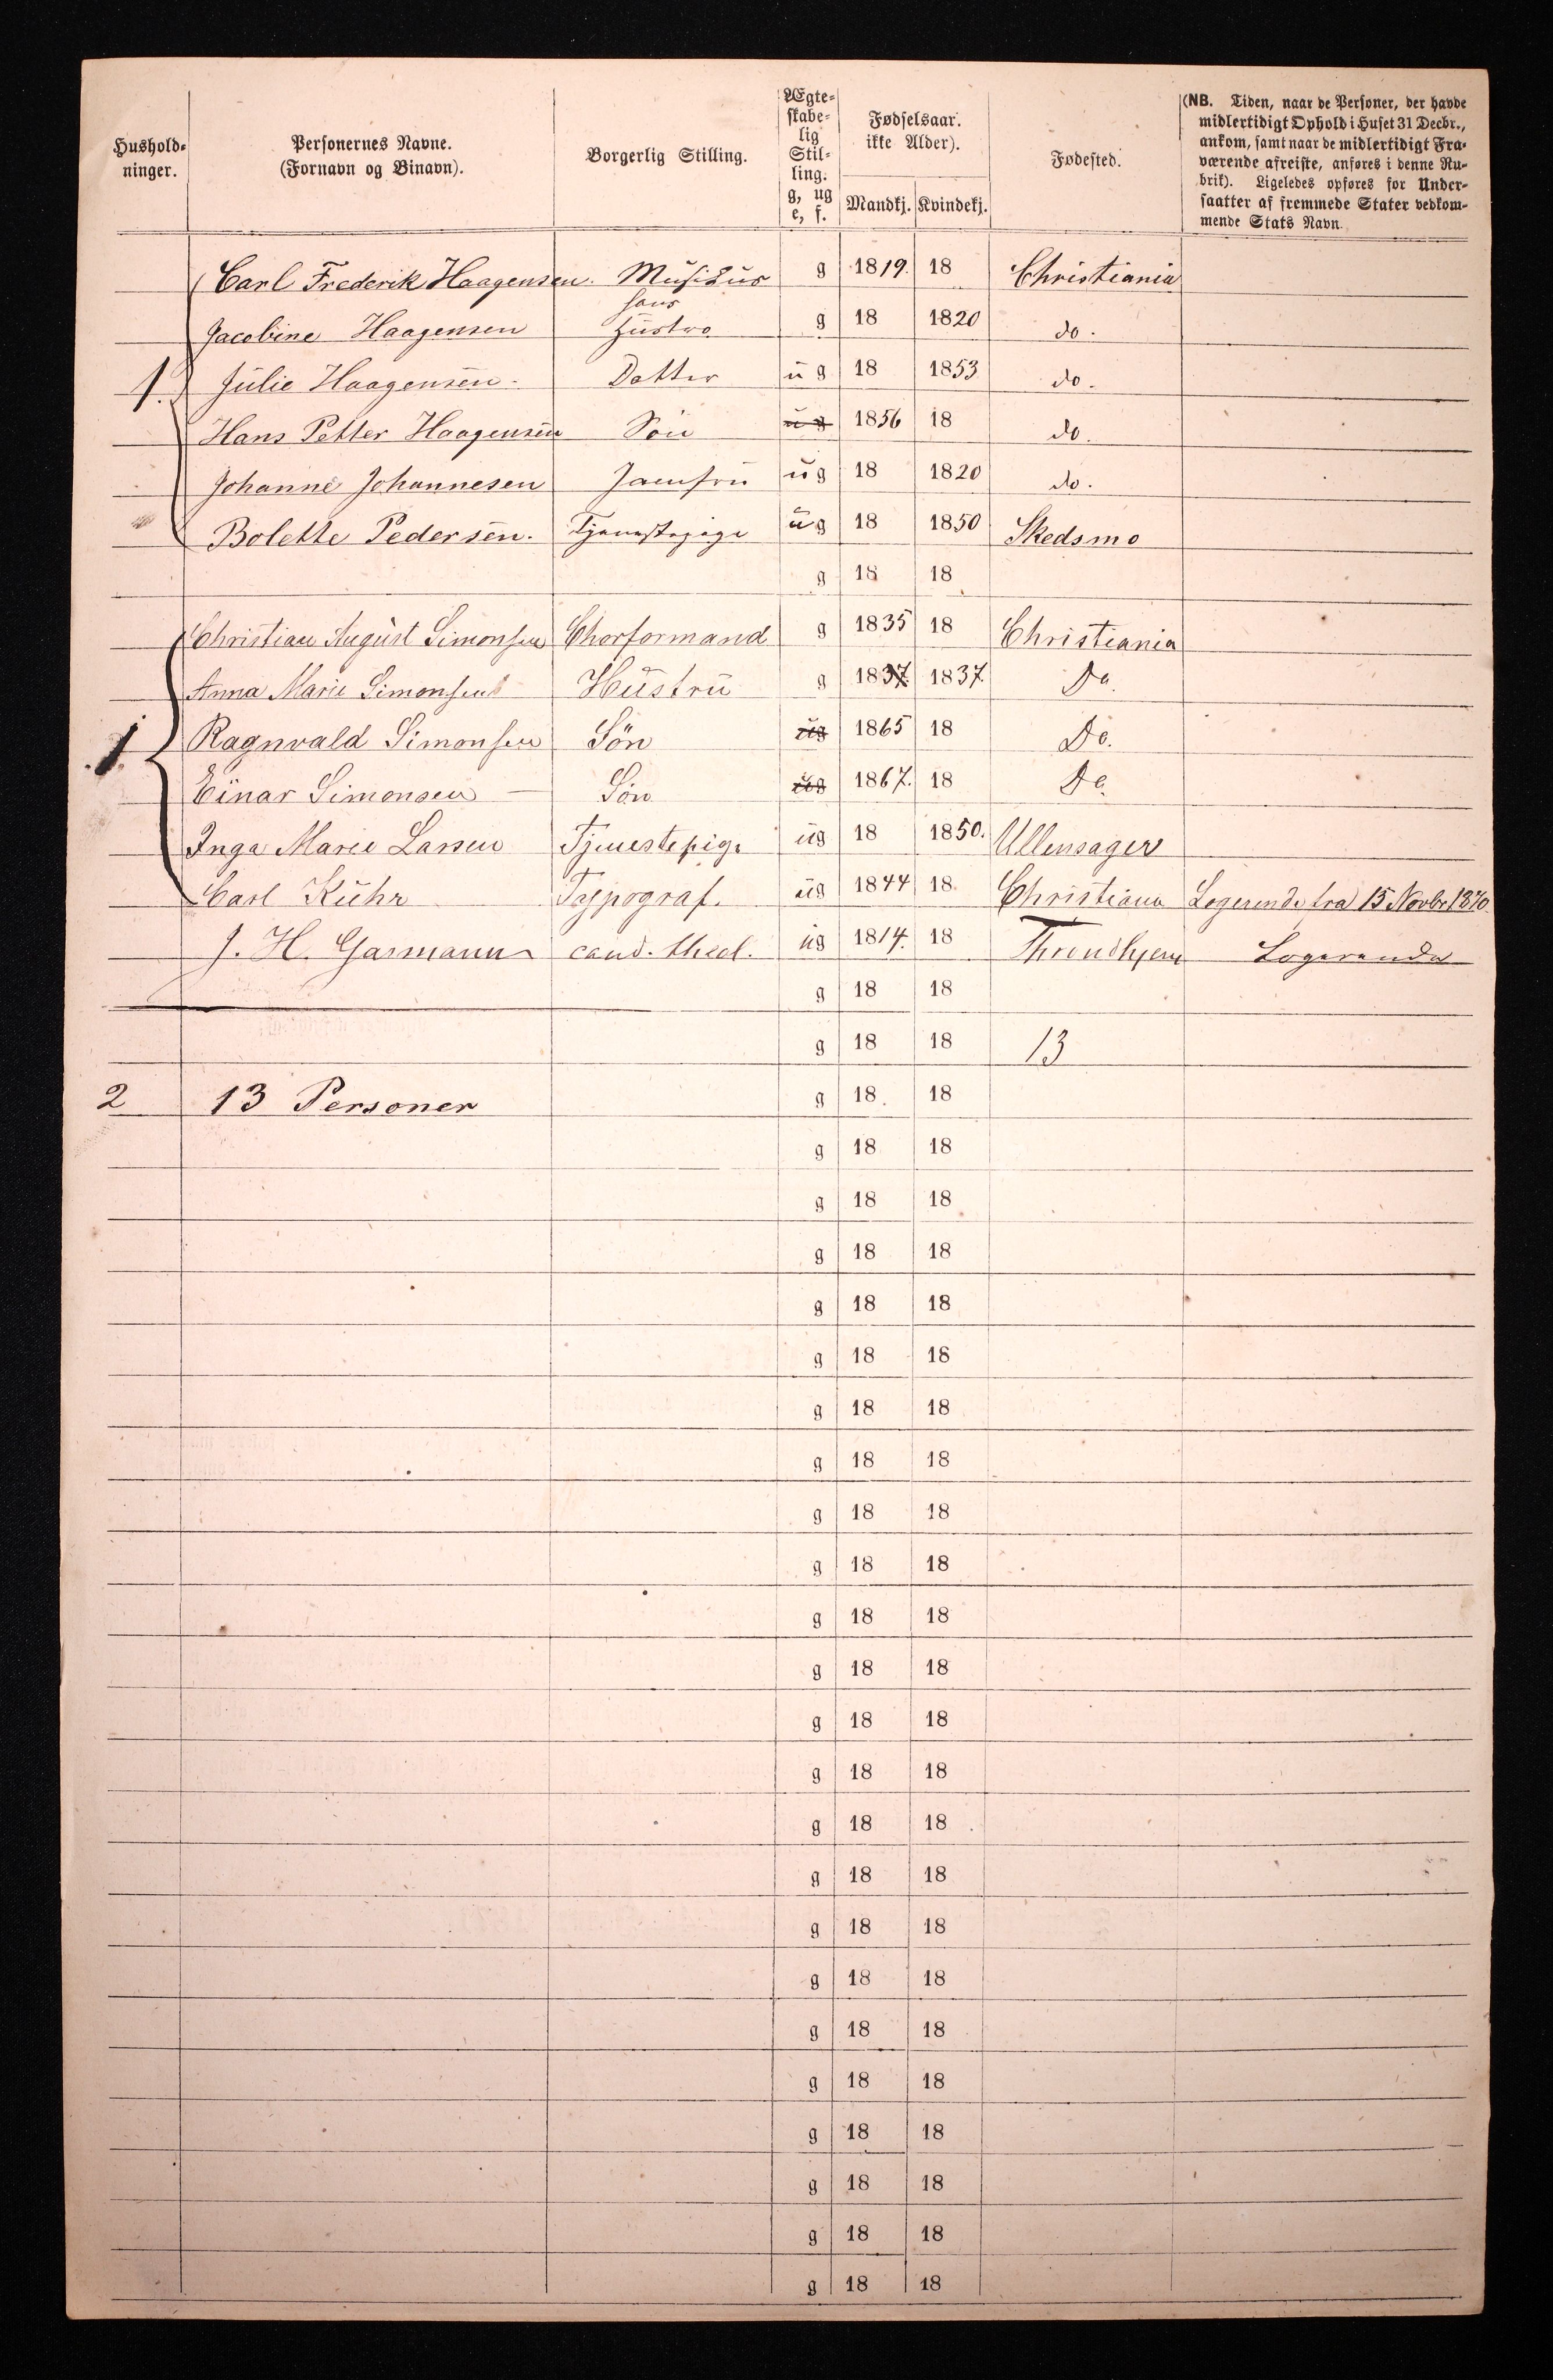 Hushold-
ninger.
Personernes Navne.
(Fornavn og Binavn).
Borgerlig Stilling.
Ægte-
skabe-
lig
Stil-
ling.
g, ug
e, f.
Fødselsaar.
ikke Alder).
Mandkj. Kvindekj.
Fødested.
(NB. Tiden, naar de Personer, der havde
midlertidigt Ophold i Huset 31 Decbr.,
ankom, samt naar de midlertidigt Fra-
værende afreiste, anføres i denne Ru-
brik). Ligeledes opføres for Under-
saatter af fremmede Stater vedkom-
mende Stats Navn.
Carl Frederik Haagensen. Musikus g 1819. 18 Christiania
hans
Jacobine Haagensen Hustro g 18 1820 do.
1. Julie Haagensen. Datter ug 18 1853 do.
Hans Petter Haagensen Søn ug 1856 18 do.
Johanne Johannesen Jomfru ug 18 1820 do.
Bolette Pedersen. Tjenestepige ug 18 1850 Skedsmo
g 18 18
Christian August Simonsen Chorformand g 1835 18 Christiania
Anna Marie Simonsen Hustru g 1837 1837. Do.
1 Ragnvald Simonsen Sön ug 1865 18 Do.
Einar Simonsen Sön ug 1867. 18 Do.
Inga Marie Larsen Tjenestepige ug 18 1850. Ullensager
Carl Kühr Typograf. ug 1844 18 Christiania Logerende fra 15 Novbr 1870.
J. H. Garmann cand. theol. ug 1814. 18 Throndhjem Logerende
g 18 18
g 18 18 13
2 13 Personer g 18 18
g 18 18
g 18 18
g 18 18
g 18 18
g 18 18
g 18 18
g 18 18
g 18 18
g 18 18
g 18 18
g 18 18
g 18 18
g 18 18
g 18 18
g 18 18
g 18 18
g 18 18
g 18 18
g 18 18
g 18 18
g 18 18
g 18 18
g 18 18